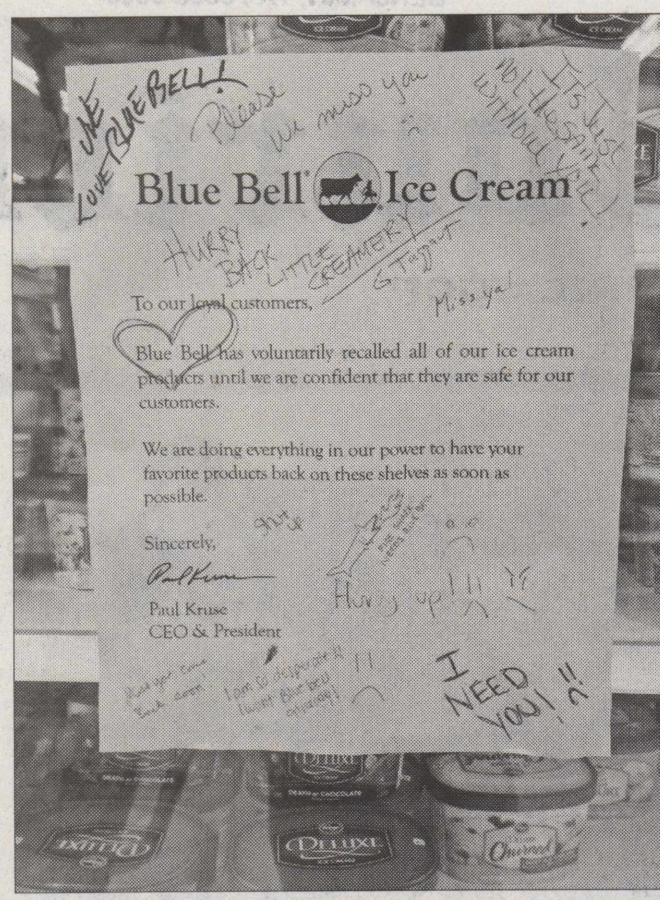 ICE CREAM
WE
LOVE BLUE BELL!
Please
We miss you
IT'S JUST
not the same
without you!
Blue Bell® Ice Cream
HURRY
BACK
LITTLE
CREAMERY
G Taggart
Miss ya!
To our loyal customers,
Blue Bell has voluntarily recalled all of our ice cream
products until we are confident that they are safe for our
customers.
We are doing everything in our power to have your
favorite products back on these shelves as soon as
possible.
Sincerely,
Paul Kruse
Paul Kruse
CEO & President
THIS SHARK
NEEDS BLUE BELL
Hurry up!!!
come
back soon!
I am so desperate!!
I want Blue Bell
I
NEED
YOU!
DEATH BY CHOCOLATE
DELUXE
DEATH BY CHOCOLATE
DELUXE
DELUXE
ICE CREAM
Churned